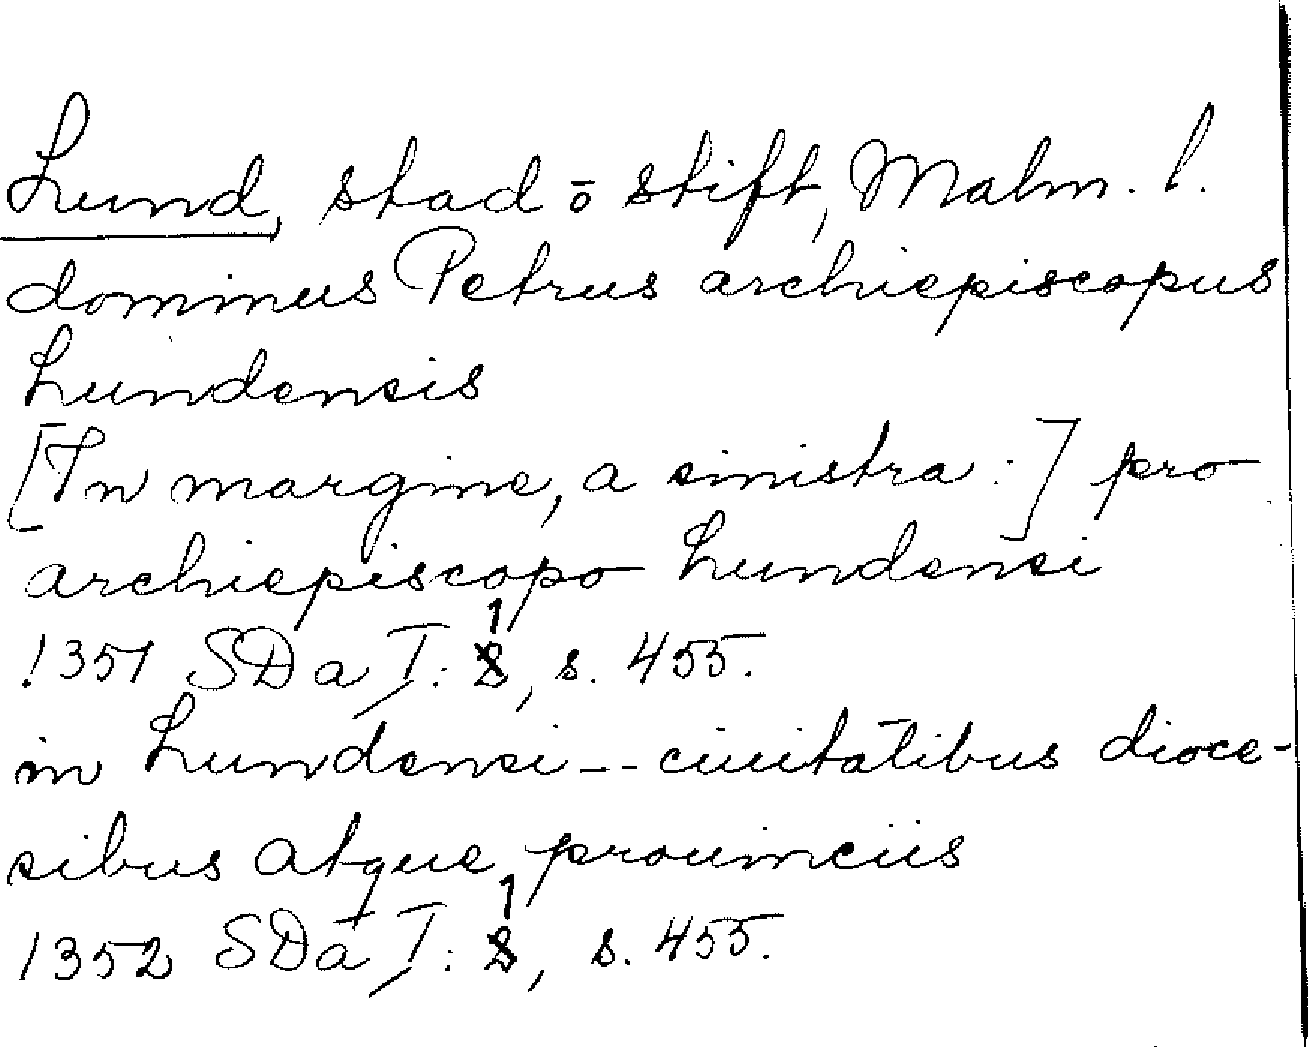 Lund, stad ō stift, Malm. l.
dominus Petrus archiepiscopus
Lundensis
[In margine, a sinistra:] pro
archiepiscopo Lundensi
1351 SDa I:1, s. 455.
in Lundensi -- ciuitatibus dioce-
sibus atque prouinciis
1352 SDa I:1, s. 455.